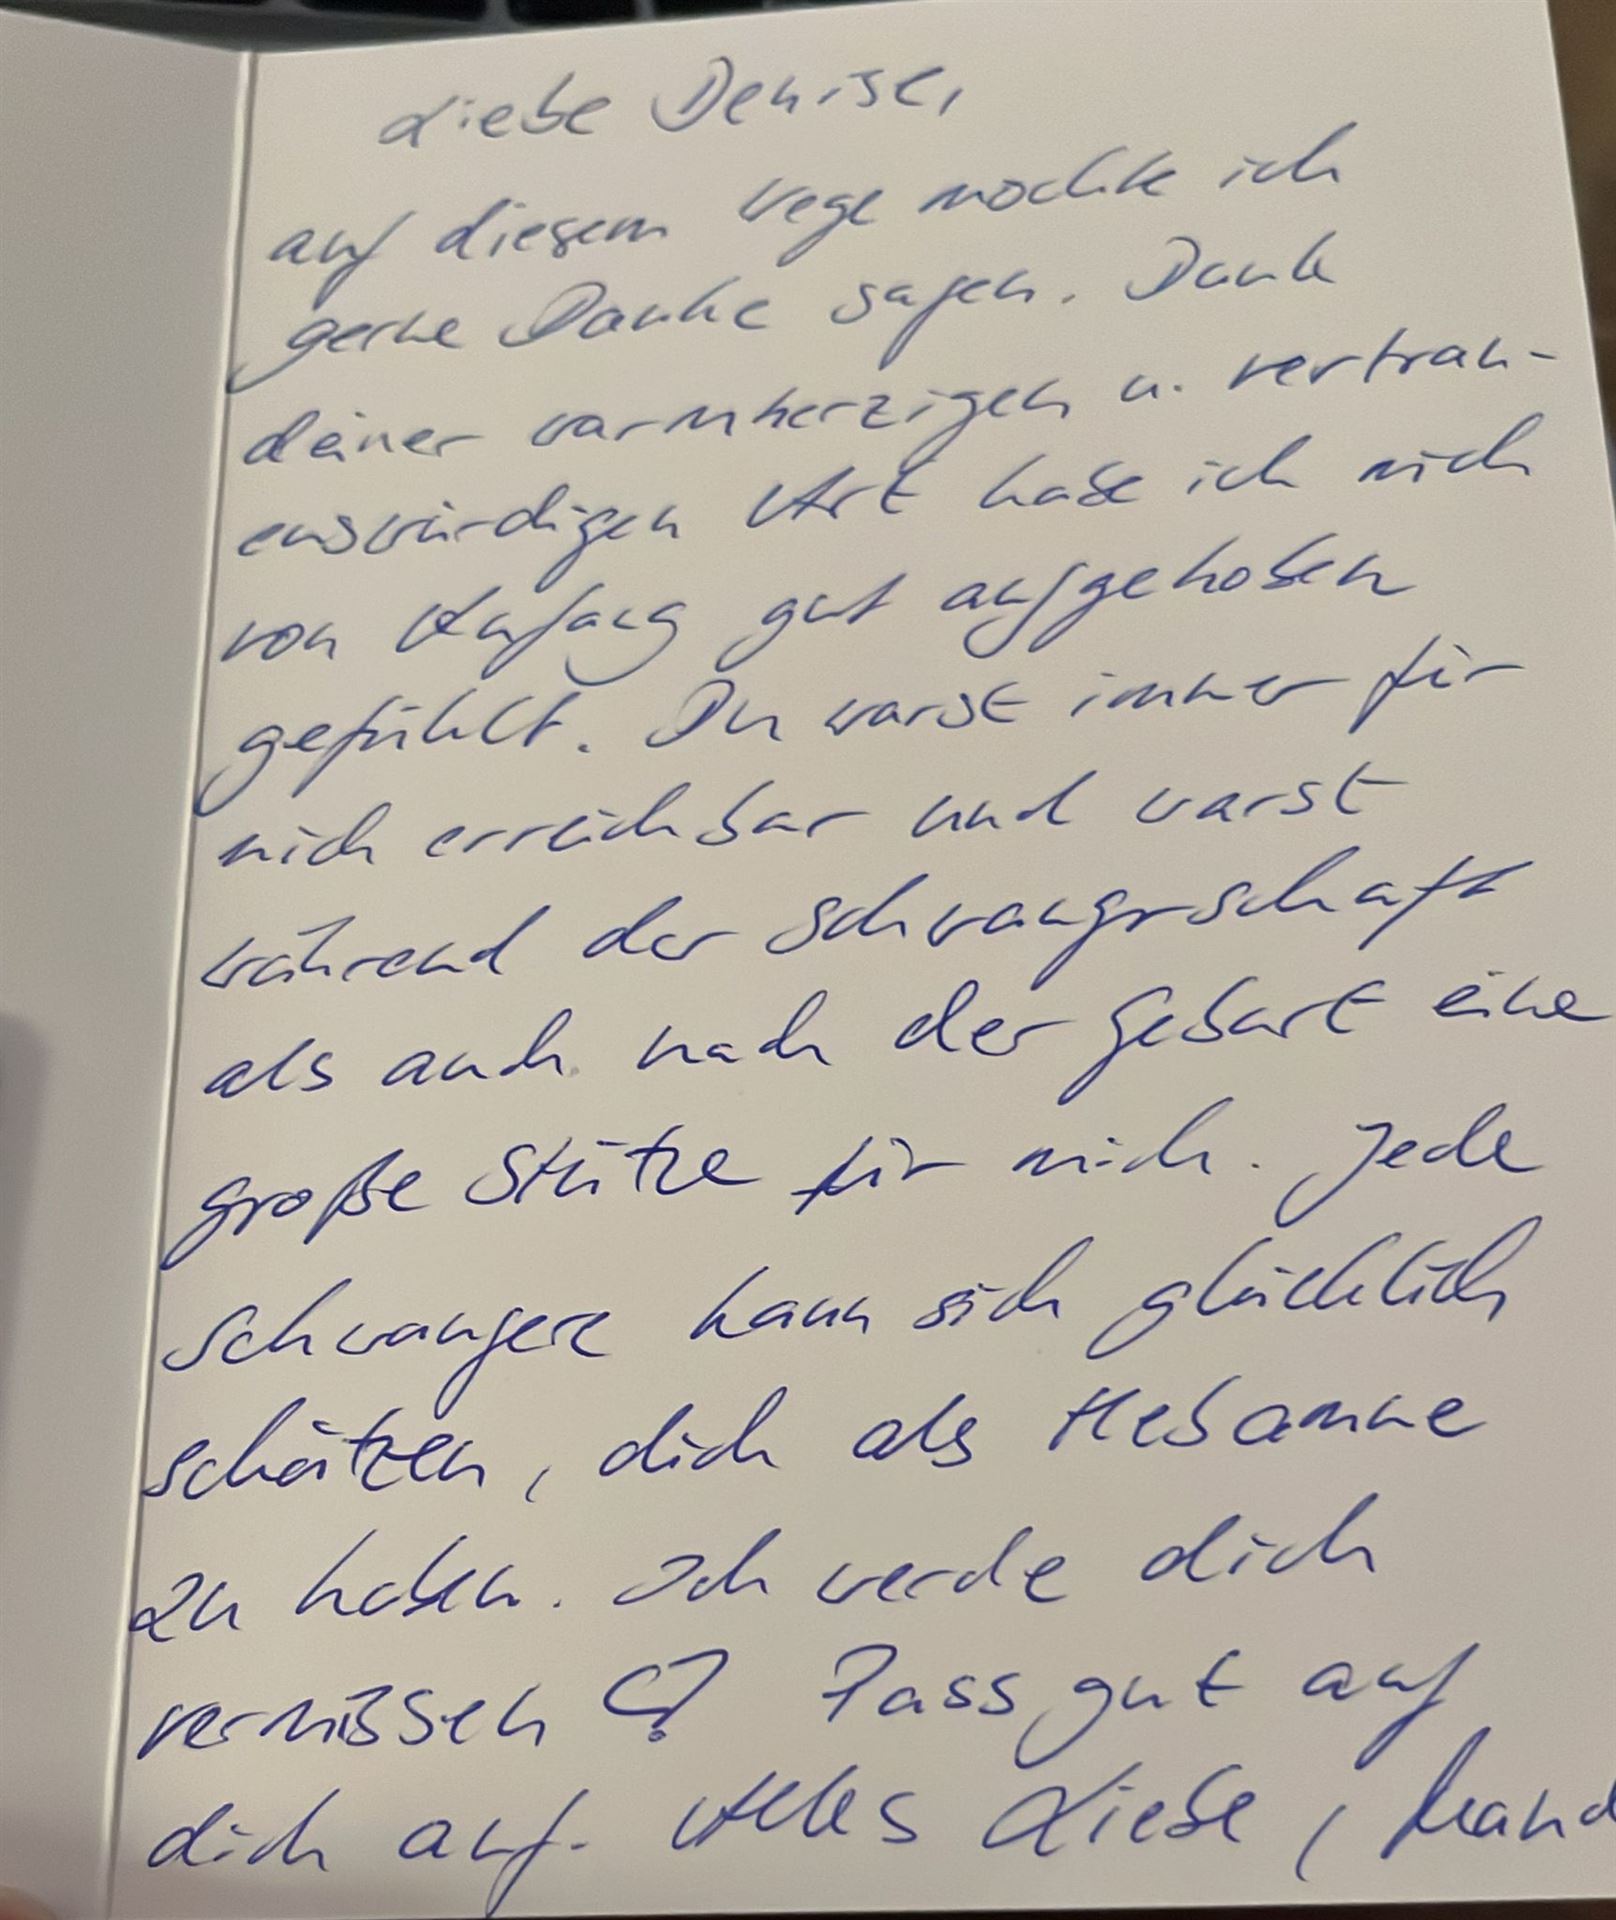 Liebe Denise,
auf diesem Wege möchte ich
gerne Danke sagen. Dank
deiner warmherzigen u. vertrau-
enswürdigen Art habe ich mich
von Anfang gut aufgehoben
gefühlt. Du warst immer für
mich erreichbar und warst
während der Schwangrschaft
als auch nach der Geburt eine
große Stütze für mich. Jede
Schwangere kann sich glücklich
schätzen, dich als Hebamme
zu haben. Ich werde dich
vermissen ♡ Pass gut auf
dich auf. Alles Liebe,